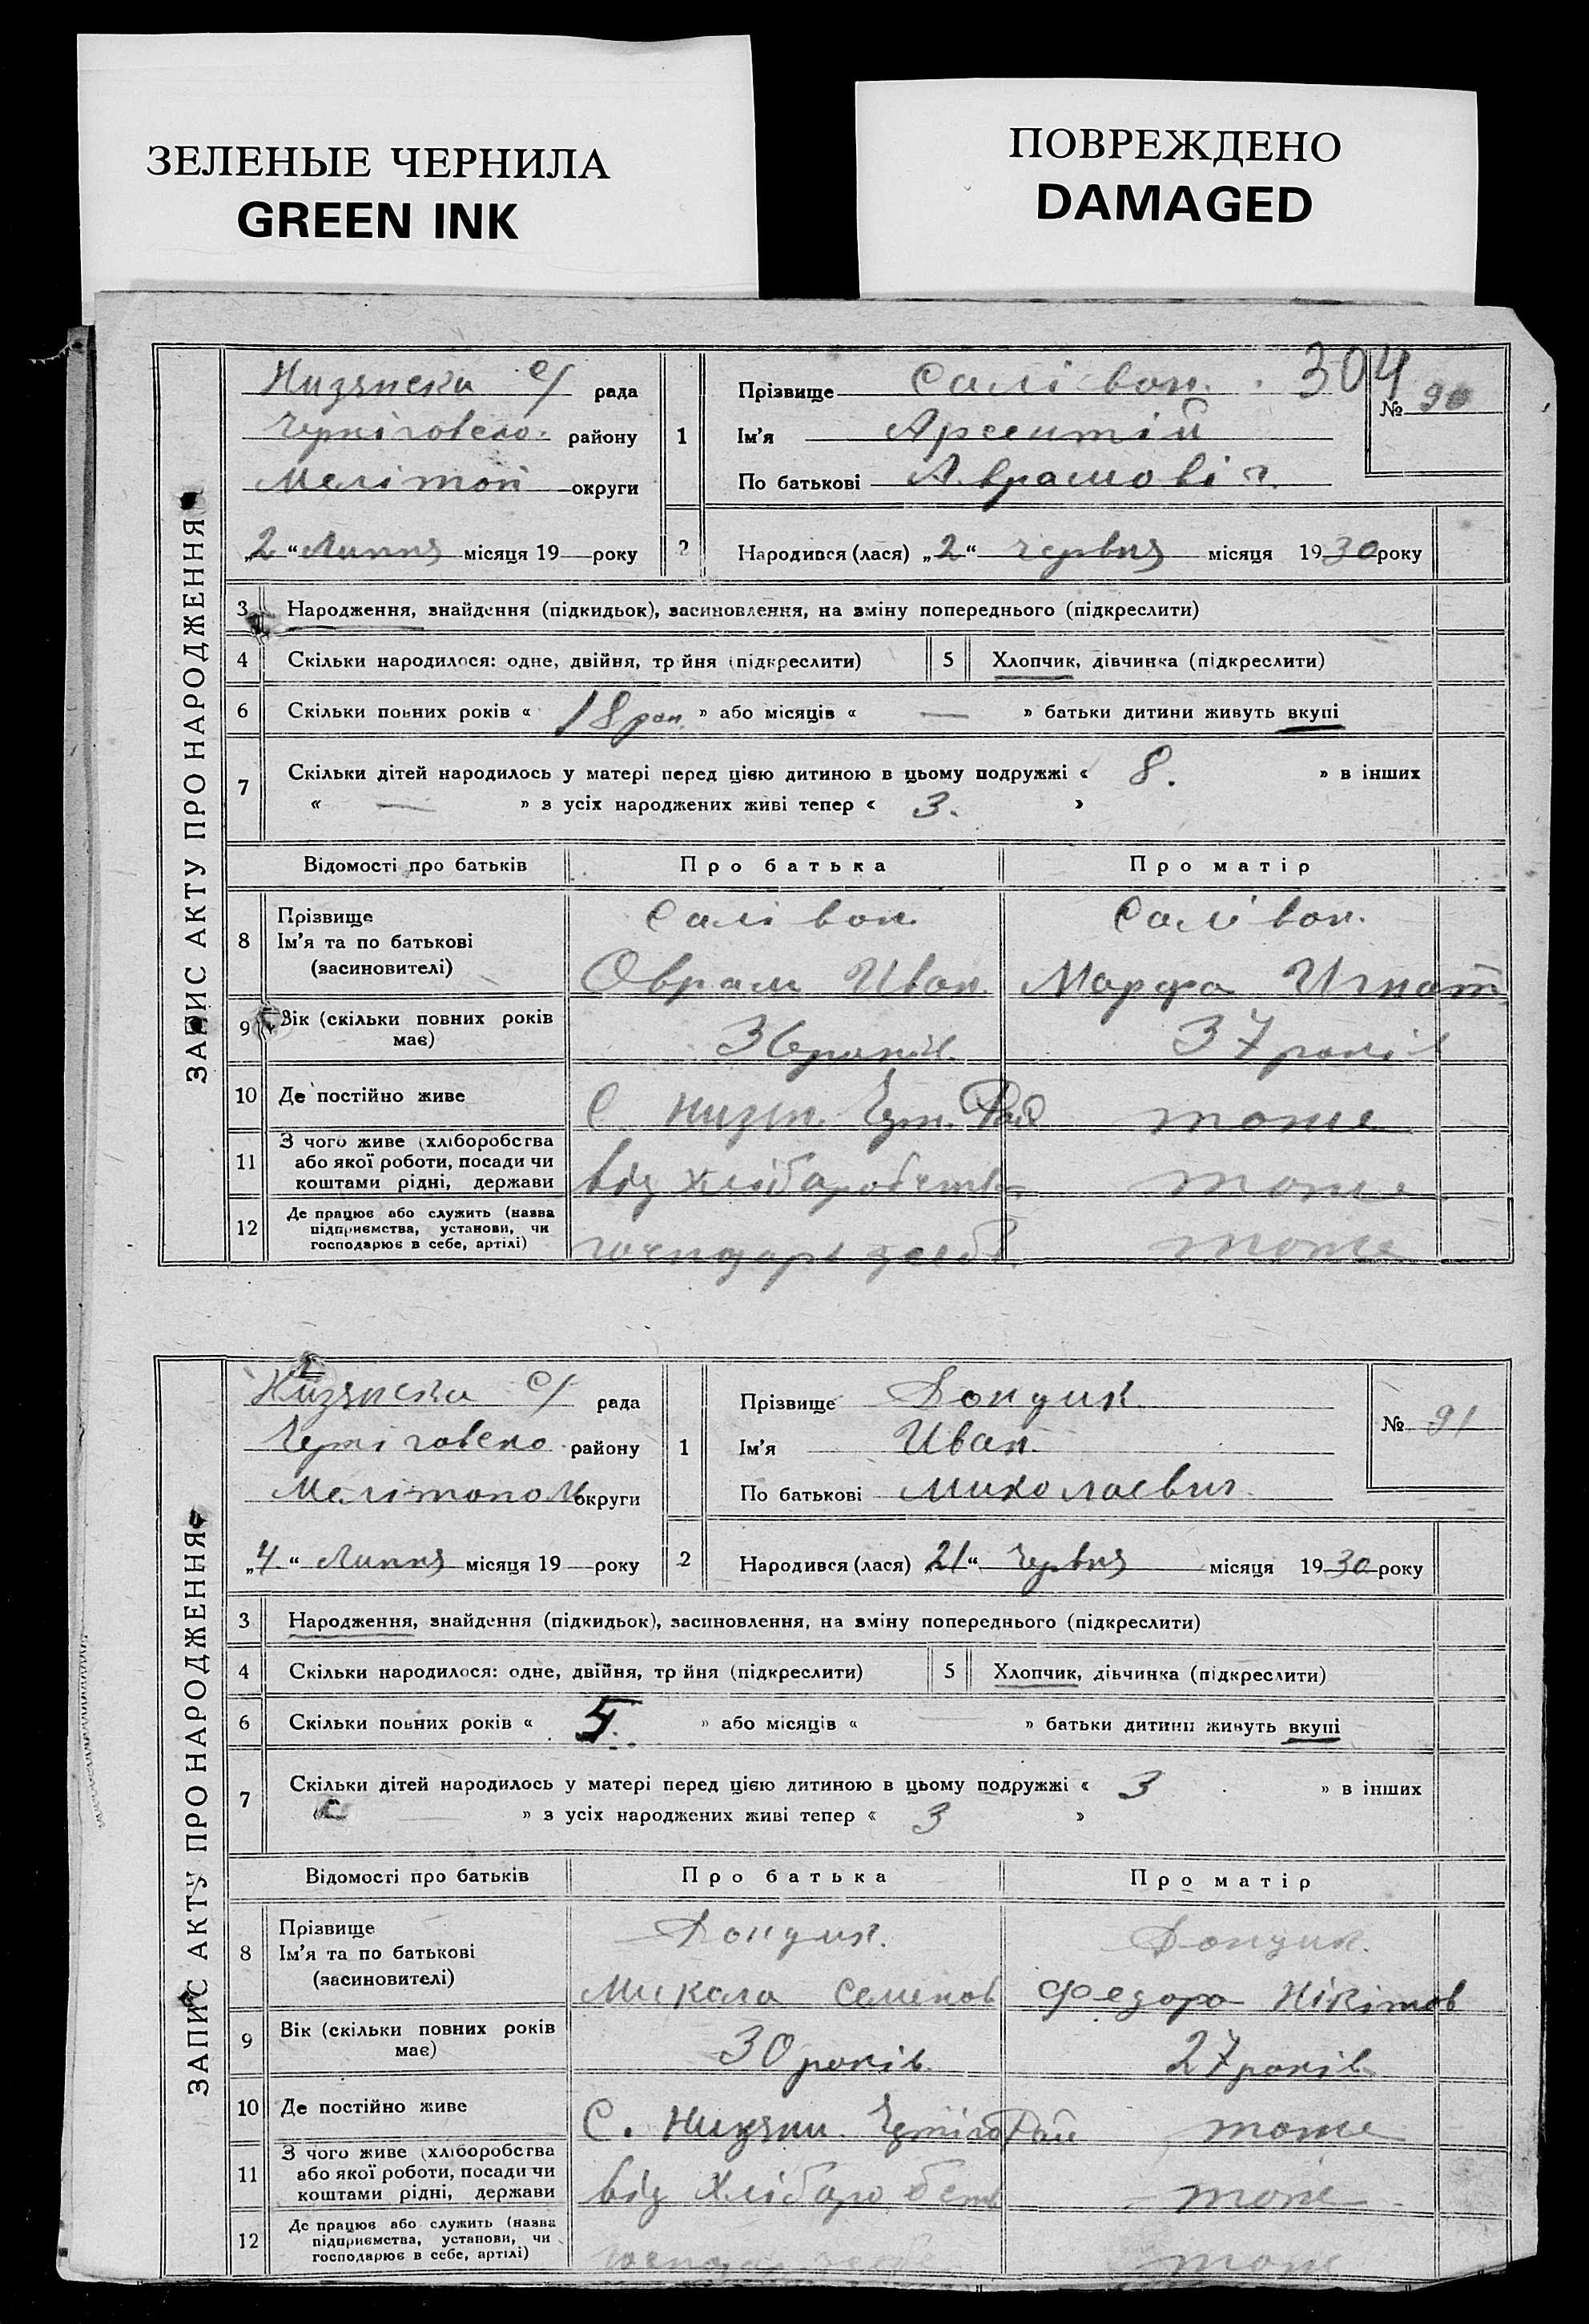 ЗЕЛЕНЫЕ ЧЕРНИЛА
GREEN INK
ПОВРЕЖДЕНО
DAMAGED
304
ЗАПИС АКТУ ПРО НАРОДЖЕННЯ
Низянска с/ рада
Чернīговско. району
Мелітоп округи
„2“ Липня місяця 19 року
1 Прізвище Салівон. № 90
Ім’я Арсентій
По батькові Аврамовіч.
2 Народився (лася) „2“ червня місяця 1930 року
3 Народження, знайдення (підкидьок), засиновлення, на зміну попереднього (підкреслити)
4 Скільки народилося: одне, двійня, тр йня (підкреслити) 5 Хлопчик, дівчинка (підкреслити)
6 Скільки повних років « 18 рок. » або місяців « — » батьки дитини живуть вкупі
7 Скільки дітей народилось у матері перед цією дитиною в цьому подружжі « 8. » в інших
« — » з усіх народжених живі тепер « 3. »
Відомості про батьків Про батька Про матір
8 Прізвище Салівон. Салівон.
Ім’я та по батькові
(засиновителі) Оврам Иван. Марфа Игнат
9 Вік (скільки повних років має) 36 років. 37 років
10 Де постійно живе С. Низян. Черн. Рай тоже
11 З чого живе (хліборобства або якої роботи, посади чи коштами рідні, держави від хліборобства тоже
12 Де працює або служить (назва підприємства, установи, чи господарює в себе, артілі) тоже
ЗАПИС АКТУ ПРО НАРОДЖЕННЯ
Низянска с/ рада
Чернiговско району
Мелітопол округи
„4“ Липня місяця 19 року
1 Прізвище Дондик № 91
Ім’я Иван.
По батькові Миколаевич
2 Народився (лася) „21“ червня місяця 1930 року
3 Народження, знайдення (підкидьок), засиновлення, на зміну попереднього (підкреслити)
4 Скільки народилося: одне, двійня, тр йня (підкреслити) 5 Хлопчик, дівчинка (підкреслити)
6 Скільки повних років « 5. » або місяців « — » батьки дитини живуть вкупі
7 Скільки дітей народилось у матері перед цією дитиною в цьому подружжі « 3 » в інших
« — » з усіх народжених живі тепер « 3 »
Відомості про батьків Про батька Про матір
8 Прізвище Дондик. Дондик.
Ім’я та по батькові
(засиновителі) Микола Семенов Федора Нікітов
9 Вік (скільки повних років має) 30 років. 27 років
10 Де постійно живе С. Низяни. Рай тоже
11 З чого живе (хліборобства або якої роботи, посади чи коштами рідні, держави від хліборобств тоже
12 Де працює або служить (назва підприємства, установи, чи господарює в себе, артілі) тоже